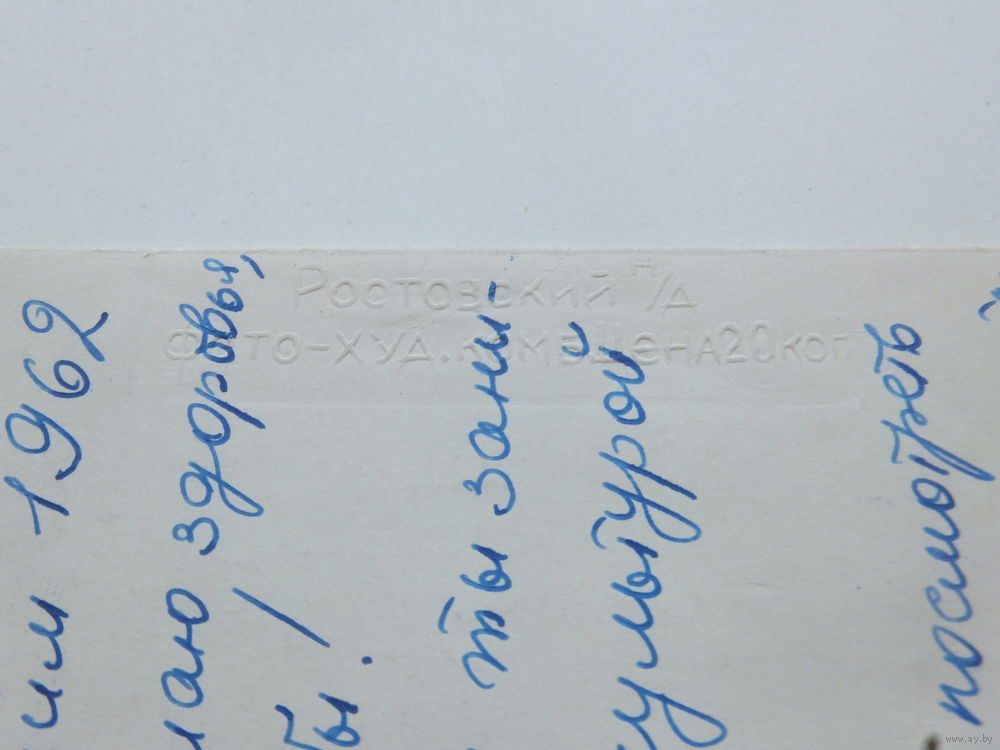 Ростовский п/д
Фото-худ.комб.Цена20коп
им 1962
лаю здоровья,
бы!
ты зани-
культурой
посмотреть
www.ay.by